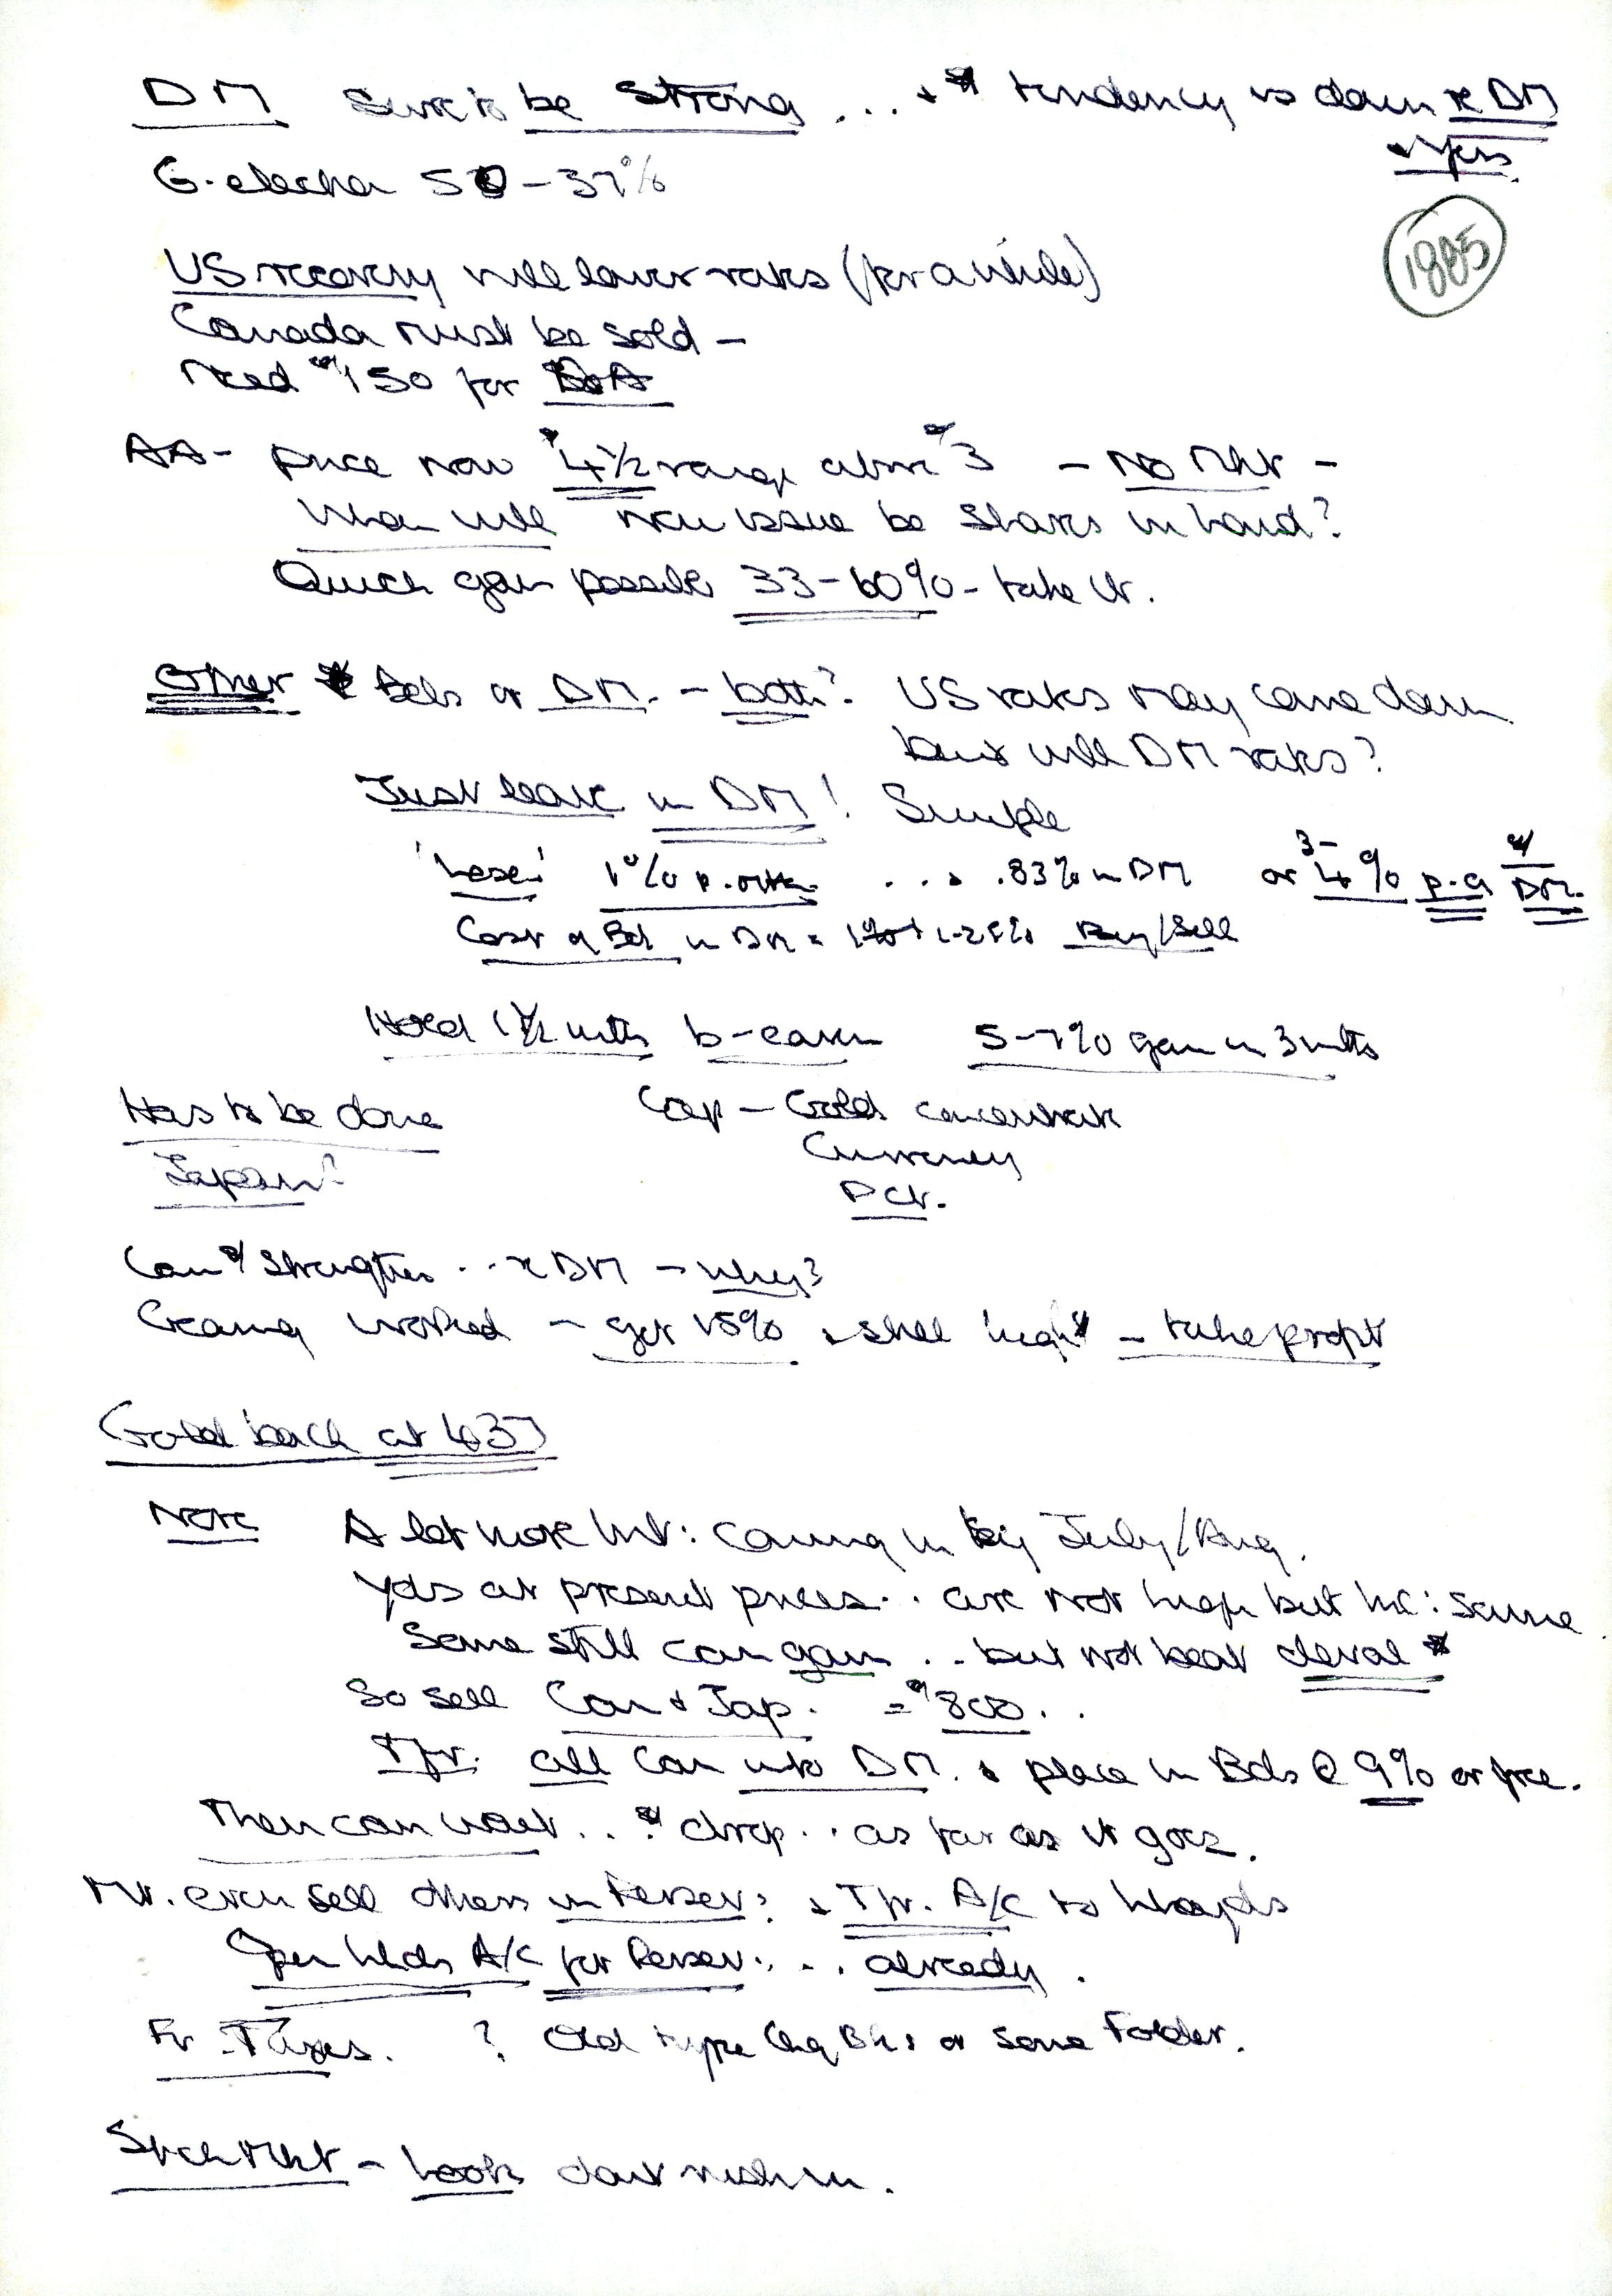 DM Sure to be strong ... + $ tendency is down re DM
+ Yens.
G. election 50 – 37%
1885
US recovery will lower rates (for a while)
Canada must be sold –
Need $150 for BoA
AA – price now $4½ range above $3 – No Mkt –
When will new issue be shares in hand?
Quick gain possible 33–60% – take it.
Other $ Bds or DM. – both? US rates may come down
but will DM rates?
Just leave in DM! Simple
'Lose' 1% p. mth. ... .83% in DM or 3–4% p.a $/DM.
Cost of Bd in DM = 1.25% Buy/Sell
Hold 1½ mths b-even 5–7% gain in 3 mths
Has to be done Cap – Gold
Currency
Japan?
Can $ strengthen .. re DM – why?
worked – got 15% + still high – take profit
Gold back at 437
Note A lot more Int: coming in by July/Aug.
Yds at present prices .. are not high but Inc: same
Some still can gain .. but not beat deval $
So sell Can + Jap. = $800 ..
Tfr. all Can into DM. + place in Bds @ 9% or free.
Then can wait .. $ drop .. as far as it goes.
Mt. even sell others in : + Tfr. A/C to Lloyds
Open Llds A/C for ... already.
Fr Taxes. ? Old type Chq Bks or some Folder.
Stock Mkt – Look dont rush in.